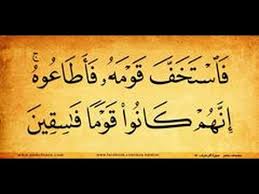 فَٱسْتَخَفَّ قَوْمَهُۥ فَأَطَاعُوهُ ۚ
إِنَّهُمْ كَانُوا۟ قَوْمًا فَٰسِقِينَ